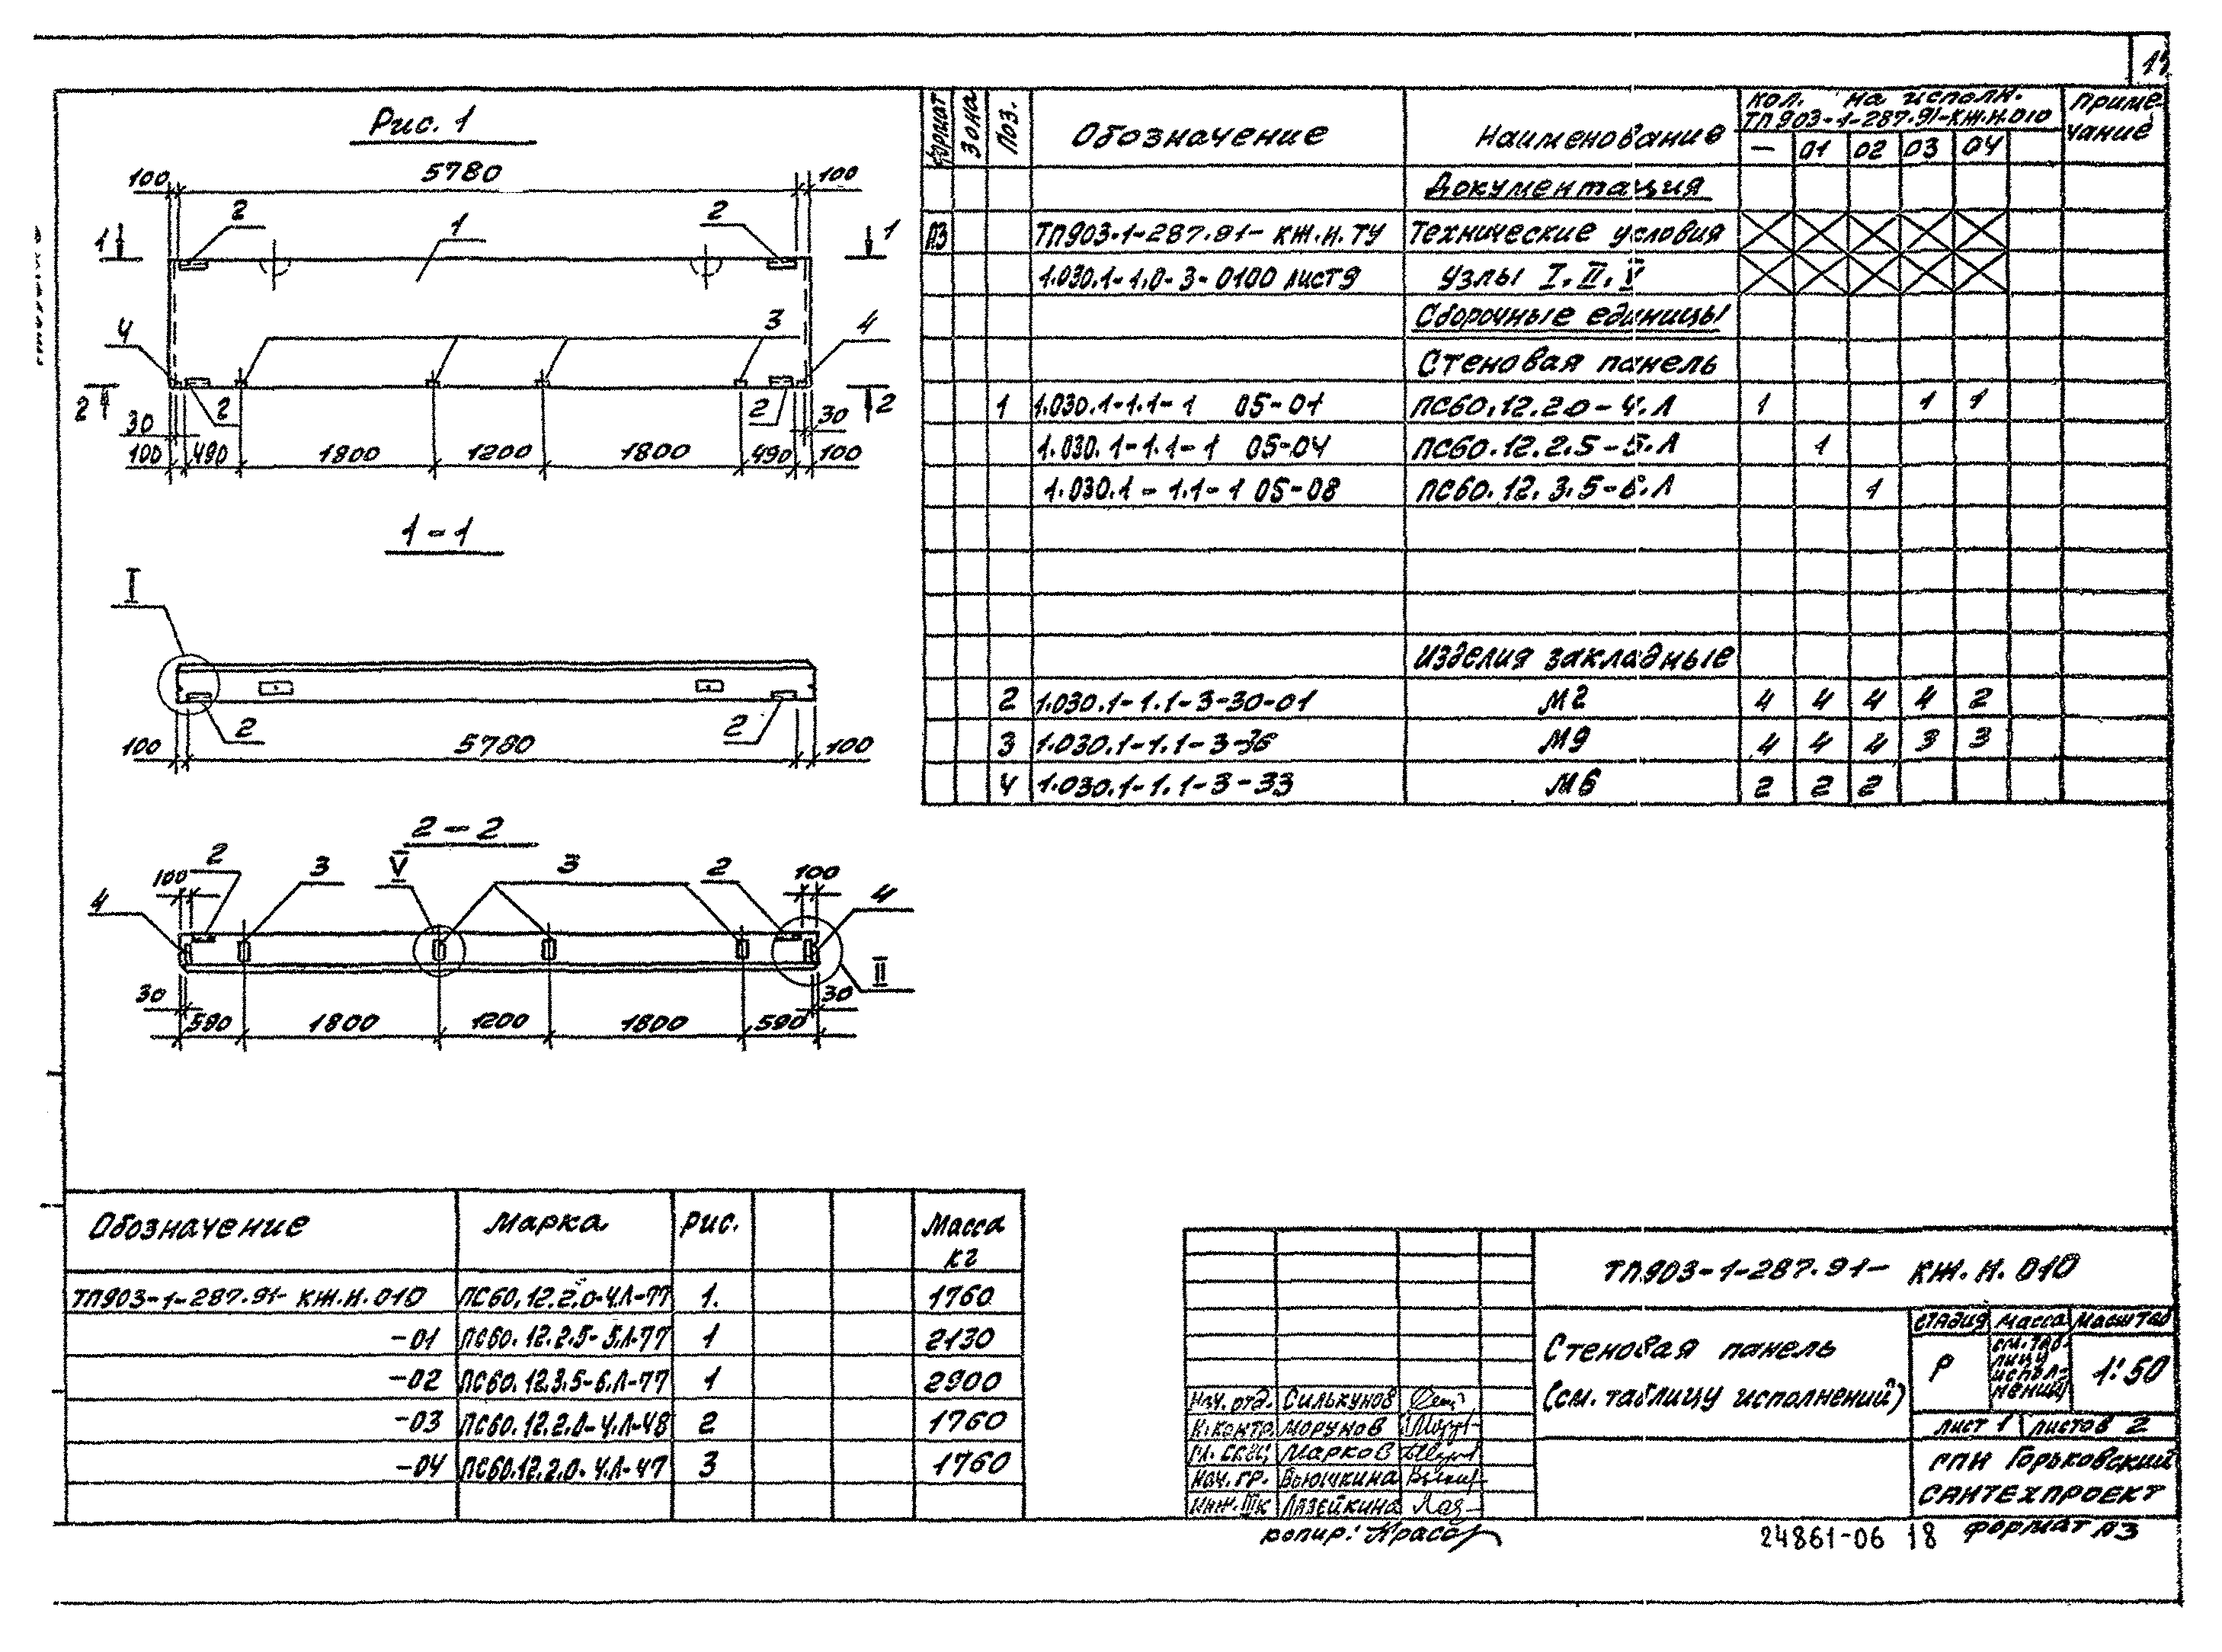 Рис. 1
100 5780 100
2 1 2
1 1
4 3 4
2 2 2 2
30 30
100 490 1800 1200 1800 490 100
1-1
I
2 2
100 5780 100
2-2
100 2 3 V 3 2 100
4 4
II
30 30
590 1800 1200 1800 590
Формат Зона Поз. Обозначение Наименование Кол. на исполн. ТП903-1-287.91-КЖ.И.010 Приме-чание
— 01 02 03 04
Документация
А3 ТП903-1-287.91-КЖ.И.ТУ Технические условия
1.030.1-1.0-3-0100 лист 9 Узлы I, II, V
Сборочные единицы
Стеновая панель
1 1.030.1-1.1-1 05-01 ПС60.12.20-4.Л 1 1 1
1.030.1-1.1-1 05-04 ПС60.12.2.5-5.Л 1
1.030.1-1.1-1 05-08 ПС60.12.3.5-6.Л 1
Изделия закладные
2 1.030.1-1.1-3-30-01 М2 4 4 4 4 2
3 1.030.1-1.1-3-36 М9 4 4 4 3 3
4 1.030.1-1.1-3-33 М6 2 2 2
Обозначение Марка Рис. Масса кг
ТП903-1-287.91-КЖ.И.010 ПС60.12.2.0-4.Л-77 1. 1760
-01 ПС60.12.2.5-5.Л-77 1 2130
-02 ПС60.12.3.5-6.Л-77 1 2900
-03 ПС60.12.2.0-4.Л-48 2 1760
-04 ПС60.12.2.0-4.Л-47 3 1760
ТП903-1-287.91- КЖ.И.010
Стеновая панель
(см. таблицу исполнений)
стадия масса масштаб
Р см. таб-лицу испол-нений 1:50
лист 1 листов 2
ГПИ Горьковский
САНТЕХПРОЕКТ
Нач. отд. Силькунов
Н.контр. Морунов
Марков
Нач. гр. Вьюшкина
Инж. IIк Лазейкина
копир:
24861-06 18 Формат А3